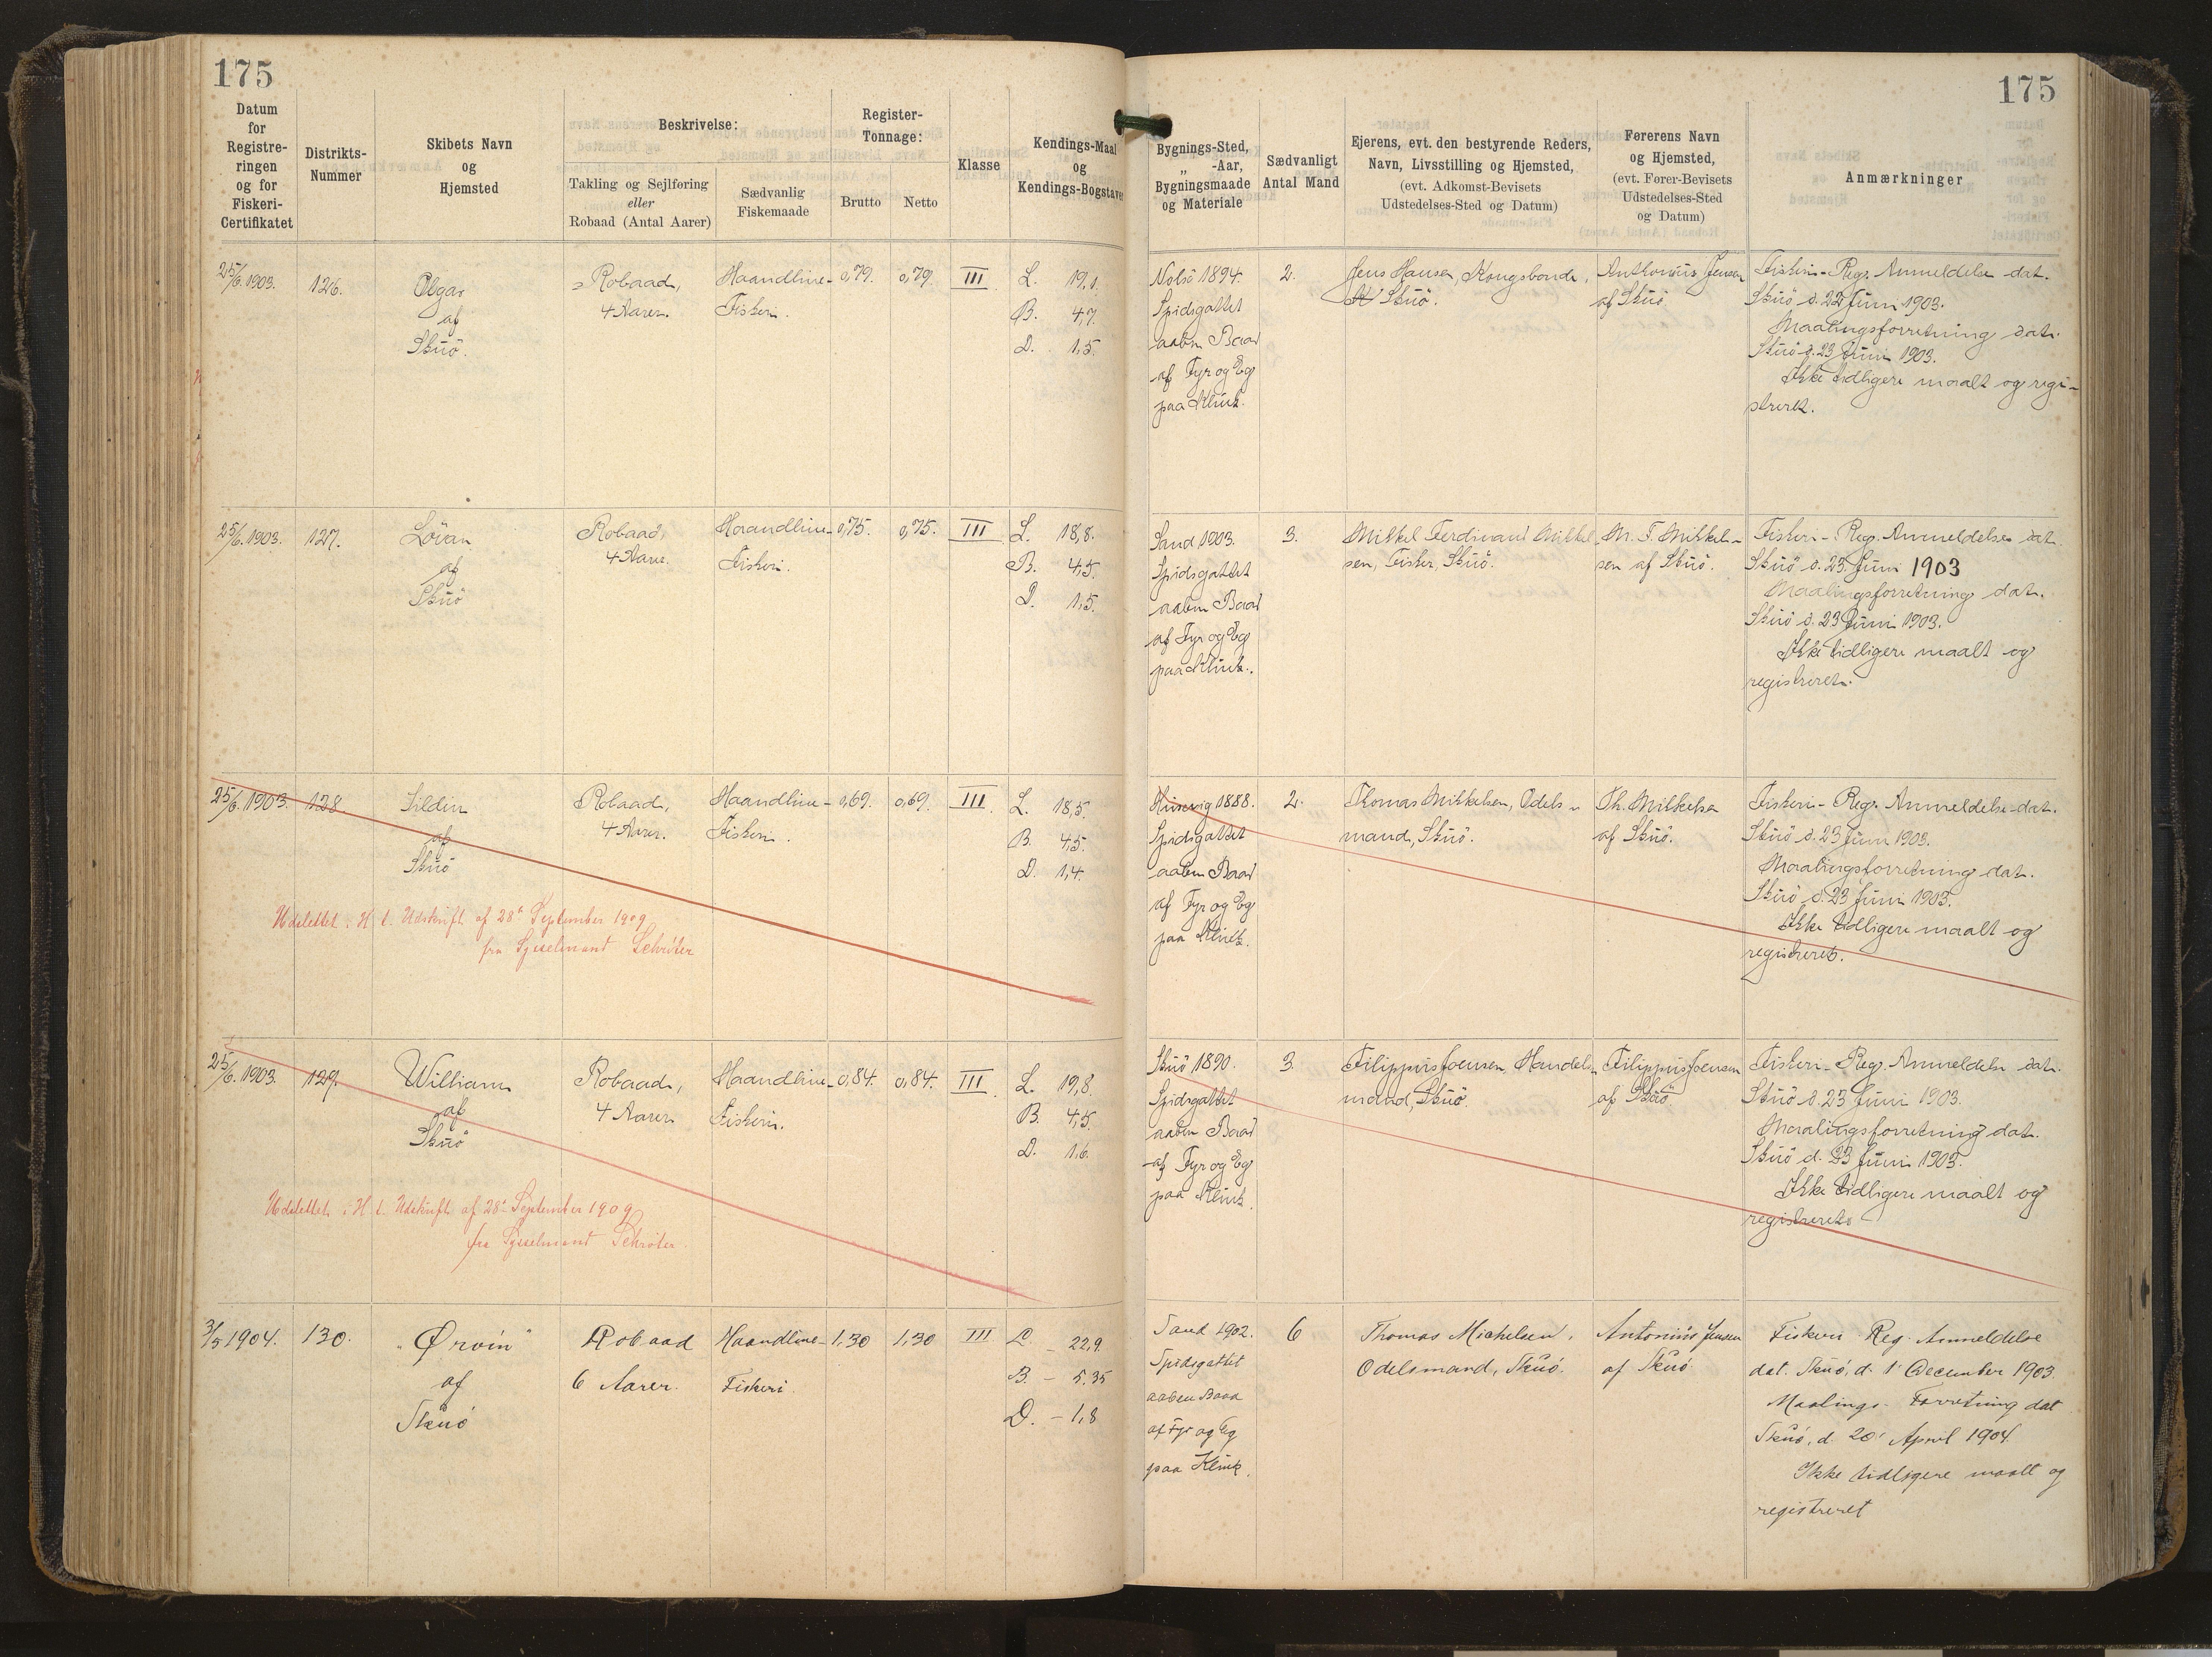 175
Datum
for
Registre-
ringen
og for
Fiskeri-
Certifikatet
Distrikts-
Nummer
Skibets Navn
og
Hjemsted
Beskrivelse:
Takling og Sejlføring
eller
Robaad (Antal Aarer)
Sædvanlig
Fiskemaade
Register-
Tonnage:
Brutto
Netto
Klasse
Kendings-Maal
og
Kendings-Bogstaver
25/6. 1903.
126.
Olgar
af
Skuö.
Robaad,
4 Aarer.
Haandline-
Fiskeri.
0,79.
0,79.
III
L. 19,1.
B. 4,7.
D. 1,5.
25/6. 1903.
127.
Lövan
af
Skuö
Robaad,
4 Aarer.
Haandline-
Fiskeri.
0,75.
0,75.
III
L. 18,8.
B. 4,5.
D. 1,5.
25/6. 1903.
128
Sildin
af
Skuö
Robaad,
4 Aarer.
Haandline-
Fiskeri.
0,69.
0,69.
III
L. 18,5.
B. 4,5.
D. 1,4.
Udslettet i H. t. Udskrift af 28' September 1909
fra Sysselmand Schrøter
25/6. 1903.
129.
William
af
Skuö
Robaad,
4 Aarer
Haandline-
Fiskeri.
0,84.
0,84.
III
L. 19,8.
B. 4,5.
D. 1,6.
Udslettet i H t. Udskrift af 28' September 1909
fra Sysselmand Schrøter
3/5 1904.
130.
"Ørvin"
af
Skuö
Robaad
6 Aarer.
Haandline-
Fiskeri.
1,30
1,30
III
L – 22,9
B. – 5,35
D. – 1,8
175
Bygnings-Sted,
„ -Aar,
Bygningsmaade
og Materiale
Sædvanligt
Antal Mand
Ejerens, evt. den bestyrende Reders,
Navn, Livsstilling og Hjemsted,
(evt. Adkomst-Bevisets
Udstedelses-Sted og Datum)
Førerens Navn
og Hjemsted,
(evt. Fører-Bevisets
Udstedelses-Sted
og Datum)
Anmærkninger
Nolsö 1894.
Spidsgattet
aaben Baad
af Fyr og Eg
paa Klink.
2.
Jens Hansen, Kongsbonde,
Skuö.
Anthonius Jensen
af Skuö
Fiskeri-Reg. Anmeldelse dat.
Skuö d. 22 Juni 1903.
Maalingsforretning dat.
Skuö d. 23 Juni 1903.
Ikke tidligere maalt og regi-
streret.
Sand 1903.
Spidsgattet
aaben Baad
af Fyr og Eg
paa Klink.
3.
Mikkel Ferdinand Mikkel-
sen, Fisker, Skuö.
M. F. Mikkel-
sen af Skuö.
Fiskeri-Reg. Anmeldelse dat.
Skuö d. 23. Juni 1903
Maalingsforretning dat.
Skuö d. 23 Juni 1903.
Ikke tidligere maalt og
registreret.
Husevig 1888.
Spidsgattet
aaben Baad
af Fyr og Eg
paa Klink.
2.
Thomas Mikkelsen, Odels-
mand, Skuö.
Th. Mikkelsen
af Skuö.
Fiskeri-Reg. Anmeldelse dat.
Skuö d. 23 Juni 1903.
Maalingsforretning dat.
Skuö d. 23 Juni 1903.
Ikke tidligere maalt og
registreret.
Skuö 1890.
Spidsgattet
aaben Baad
af Fyr og Eg
paa Klink.
3.
Filippus Joensen, Handels-
mand, Skuö.
Filippus Joensen
af Skuö
Fiskeri-Reg. Anmeldelse dat.
Skuö d. 23 Juni 1903.
Maalingsforretning dat.
Skuö d. 23 Juni 1903.
Ikke tidligere maalt og
registreret.
Sand 1902.
Spidsgattet
aaben Baad
af Fyr og Eg
paa Klink.
6
Thomas Michelsen,
Odelsmand, Skuö.
Antonius Jensen
af Skuö
Fiskeri Reg. Anmeldelse
dat. Skuö, d. 1' December 1903.
Maalings-Forretning dat
Skuö, d. 20' April 1904.
Ikke tidligere maalt og
registreret